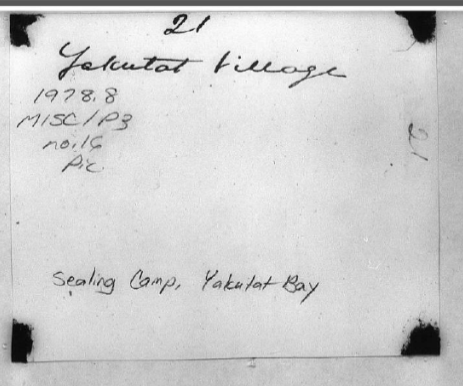 21
Yakutat Village
1978.8
MISC/P3
no.16
Pic
21
Sealing Camp, Yakutat Bay